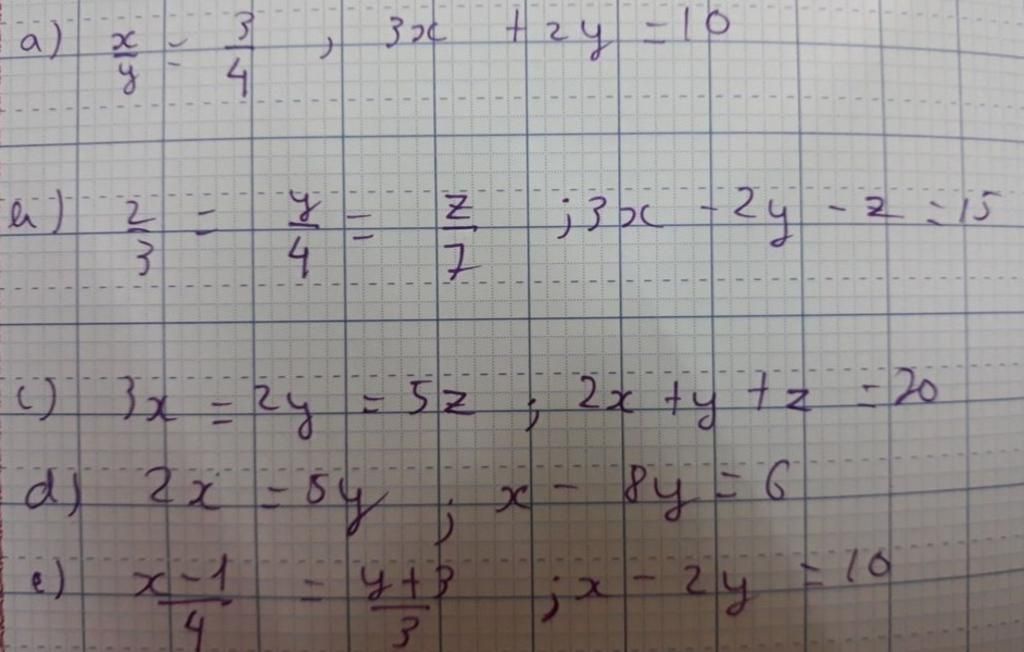 a) x/y = 3/4 , 3x + 2y = 10
b) 2/3 = y/4 = z/7 ; 3x - 2y - z = 15
c) 3x = 2y = 5z ; 2x + y + z = 20
d) 2x = 5y ; x - 8y = 6
e) x-1/4 = y+3/3 ; x - 2y = 10